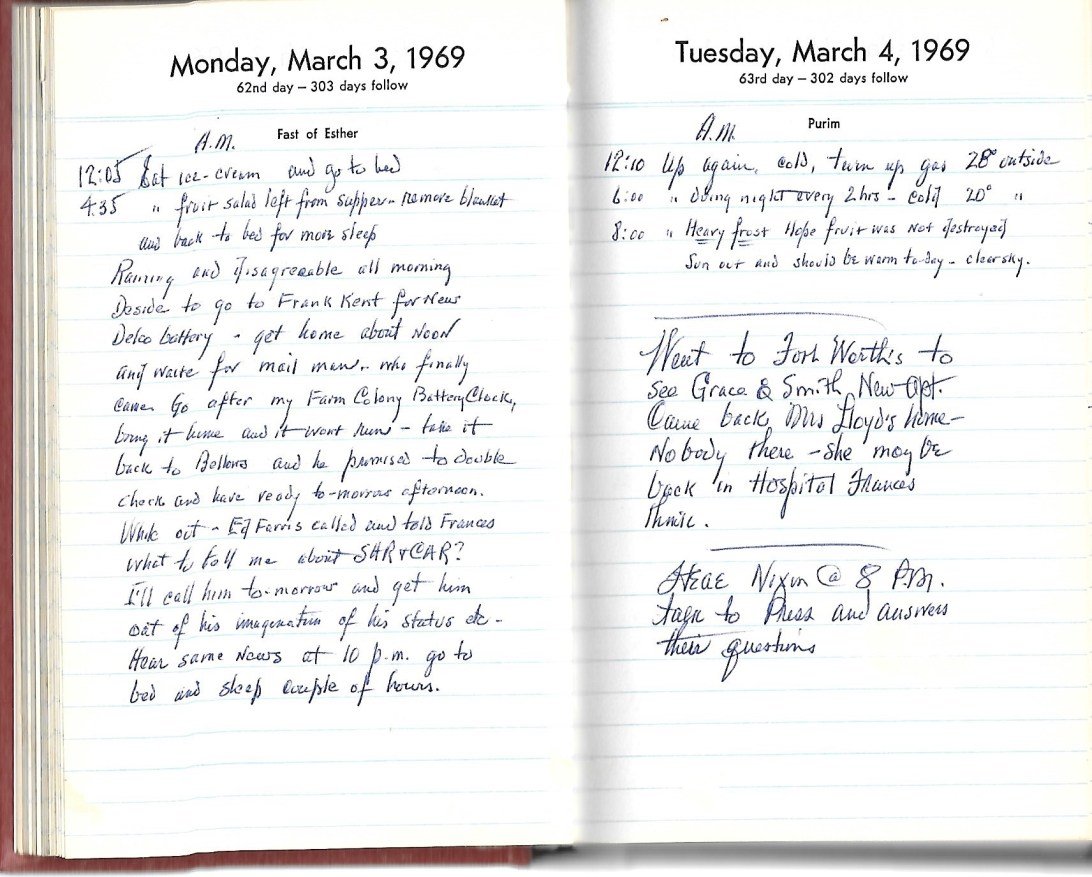 Monday, March 3, 1969
62nd day – 303 days follow
Fast of Esther
A.M.
12:05 Eat ice-cream and go to bed
4:35 " fruit salad left from supper - remove blanket
and back to bed for more sleep
Raining and disagreeable all morning
Deside to go to Frank Kent for New
Delco battery - get home about Noon
and waite for mail man - who finally
came. Go after my Farm Colony Battery Clock,
bring it home and it wont run - take it
back to Bellows and he promised to double
check and have ready to-morrow afternoon.
While out - Ed Farris called and told Frances
what to tell me about SAR & CAR?
I'll call him to-morrow and get him
out of his imagination of his status etc -
Hear same News at 10 p.m. go to
bed and sleep couple of hours.
Tuesday, March 4, 1969
63rd day – 302 days follow
Purim
A.M.
12:10 Up again, cold, turn up gas 28° outside
6:00 " During night every 2 hrs - cold 20° "
8:00 " Heavy frost Hope fruit was not destroyed
Sun out and should be warm to-day - clear sky.
Went to Fort Worth's to
see Grace & Smith New Apt.
Came back Mrs Lloyd's home -
Nobody there - she may be
back in Hospital Frances
think.
Hear Nixon @ 8 P.M.
talk to Press and answers
their questions